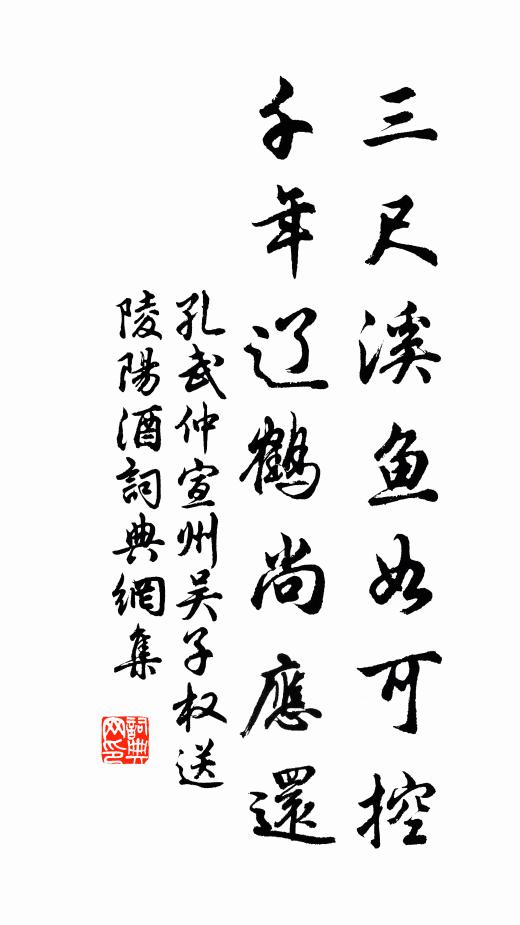 三尺溪鱼如可控
千年辽鹤尚應還
孔武仲宣州吴子权送
陵陽酒詞典網集
詞典
网印